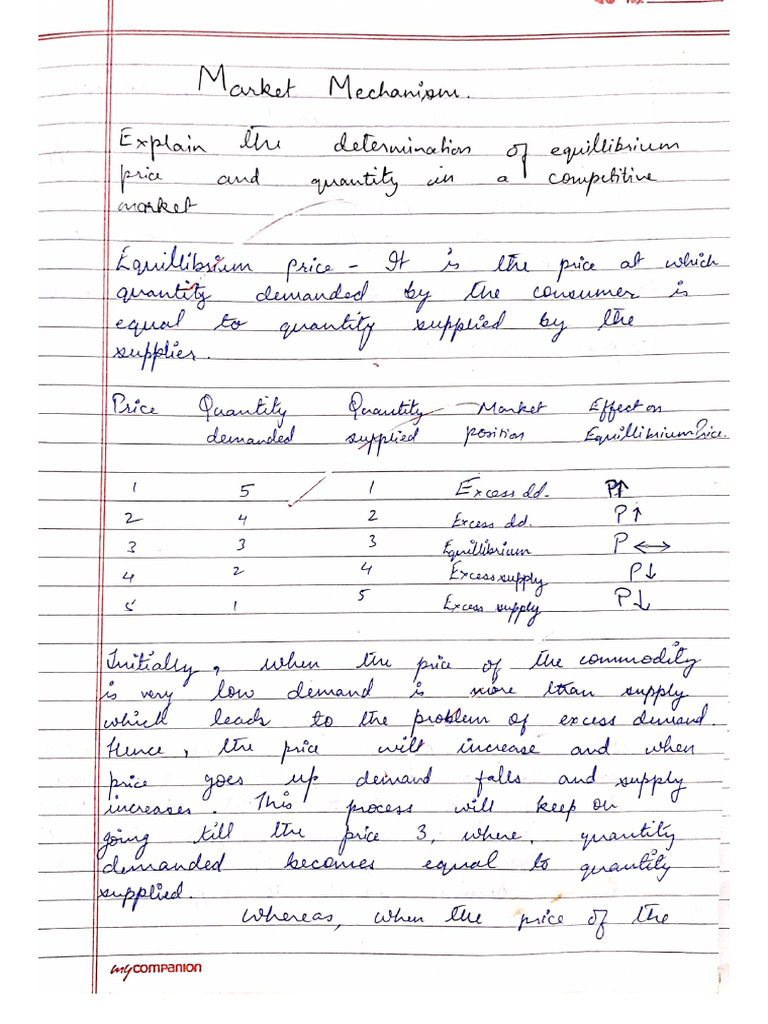 Market Mechanism.
Explain the determination of equillibrium
price and quantity in a competitive
market
Equillibrium price - It is the price at which
quantity demanded by the consumer is
equal to quantity supplied by the
supplier.
Price Quantity Quantity Market Effect on
demanded supplied position Equillibrium Price.
1 5 1 Excess dd. P↑
2 4 2 Excess dd. P↑
3 3 3 Equillibrium P ↔
4 2 4 Excess supply P↓
5 1 5 Excess supply P↓
Initially, when the price of the commodity
is very low demand is more than supply
which leads to the problem of excess demand.
Hence, the price will increase and when
price goes up demand falls and supply
increases. This process will keep on
going till the price 3, where, quantity
demanded becomes equal to quantity
supplied.
Whereas, when the price of the
mycompanion